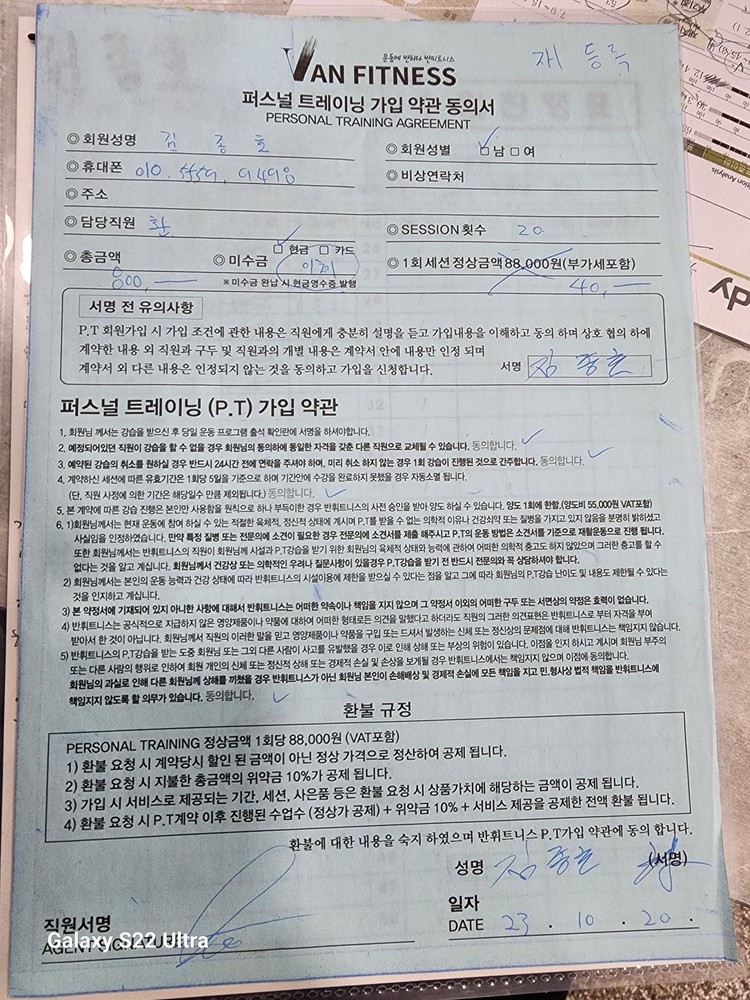 운동에 반하다 반피트니스
VAN FITNESS
재 등록
퍼스널 트레이닝 가입 약관 동의서
PERSONAL TRAINING AGREEMENT
◎ 회원성명 김 종 호
◎ 회원성별 □ 남 □ 여
◎ 휴대폰
◎ 비상연락처
◎ 주소
◎ 담당직원 환
◎ SESSION횟수 20
◎ 총금액 800,—
◎ 미수금 □ 현금 □ 카드
이체
※ 미수금 완납 시 현금영수증 발행
◎ 1회 세션 정상금액 88,000원(부가세포함)
40,—
서명 전 유의사항
P.T 회원가입 시 가입 조건에 관한 내용은 직원에게 충분히 설명을 듣고 가입내용을 이해하고 동의 하며 상호 협의 하에
계약한 내용 외 직원과 구두 및 직원과의 개별 내용은 계약서 안에 내용만 인정 되며
계약서 외 다른 내용은 인정되지 않는 것을 동의하고 가입을 신청합니다.
서명 김종호
퍼스널 트레이닝 (P.T) 가입 약관
1. 회원님 께서는 강습을 받으신 후 당일 운동 프로그램 출석 확인란에 서명을 하셔야합니다.
2. 예정되어있던 직원이 강습을 할 수 없을 경우 회원님의 동의하에 동일한 자격을 갖춘 다른 직원으로 교체될 수 있습니다. 동의합니다.
3. 예약된 강습의 취소를 원하실 경우 반드시 24시간 전에 연락을 주셔야 하며, 미리 취소 하지 않는 경우 1회 강습이 진행된 것으로 간주합니다. 동의합니다.
4. 계약하신 세션에 따른 유효기간은 1회당 5일을 기준으로 하며 기간안에 수강을 완료하지 못했을 경우 자동소멸 됩니다.
(단, 직원 사정에 의한 기간은 해당일수 만큼 제외됩니다.) 동의합니다.
5. 본 계약에 따른 강습 진행은 본인만 사용함을 원칙으로 하나 부득이한 경우 반휘트니스의 사전 승인을 받아 양도 하실 수 있습니다. 양도 1회에 한함.(양도비 55,000원 VAT포함)
6. 1)회원님께서는 현재 운동에 참여 하실 수 있는 적절한 육체적, 정신적 상태에 계시며 P.T를 받을 수 없는 의학적 이유나 건강쇠약 또는 질병을 가지고 있지 않음을 분명히 밝히셨고
사실임을 인정하였습니다. 만약 특정 질병 또는 전문의에 소견이 필요한 경우 전문의에 소견서를 제출 해주시고 P.T의 운동 방법은 소견서를 기준으로 재활운동으로 진행 됩니다.
또한 회원님께서는 반휘트니스의 직원이 회원님께 시설과 P.T강습을 받기 위한 회원님의 육체적 상태와 능력에 관하여 어떠한 의학적 충고도 하지 않았으며 그러한 충고를 할 수
없다는 것을 알고 계십니다. 회원님께서 건강상 또는 의학적인 우려나 질문사항이 있을경우 P.T강습을 받기 전 반드시 전문의와 꼭 상담하셔야 합니다.
2) 회원님께서는 본인의 운동 능력과 건강 상태에 따라 반휘트니스의 시설이용에 제한을 받으실 수 있다는 점을 알고 그에 따라 회원님의 P.T강습 난이도 및 내용도 제한될 수 있다는
것을 인지하고 계십니다.
3) 본 약정서에 기재되어 있지 아니한 사항에 대해서 반휘트니스는 어떠한 약속이나 책임을 지지 않으며 그 약정서 이외의 어떠한 구두 또는 서면상의 약정은 효력이 없습니다.
4) 반휘트니스는 공식적으로 지급하지 않은 영양제품이나 약품에 대하여 어떠한 형태로든 의견을 말했다고 하더라도 직원의 그러한 의견표현은 반휘트니스로 부터 자격을 부여
받아서 한 것이 아닙니다. 회원님께서 직원의 이러한 말을 믿고 영양제품이나 약품을 구입 또는 드셔서 발생하는 신체 또는 정신상의 문제점에 대해 반휘트니스는 책임지지 않습니다.
5) 반휘트니스의 P.T강습을 받는 도중 회원님 또는 그외 다른 사람이 사고를 유발했을 경우 이로 인해 상해 또는 부상의 위험이 있습니다. 이점을 인지 하시고 계시며 회원님 부주의
또는 다른 사람의 행위로 인하여 회원 개인의 신체 또는 정신적 상해 또는 경제적 손실 및 손상을 보게될 경우 반휘트니스에서는 책임지지 않으며 이점에 동의합니다.
회원님의 과실로 인해 다른 회원님께 상해를 끼쳤을 경우 반휘트니스가 아닌 회원님 본인이 손해배상 및 경제적 손실에 모든 책임을 지고 민,형사상 법적 책임을 반휘트니스에
책임지지 않도록 할 의무가 있습니다. 동의합니다.
환불 규정
PERSONAL TRAINING 정상금액 1회당 88,000원 (VAT포함)
1) 환불 요청 시 계약당시 할인 된 금액이 아닌 정상 가격으로 정산하여 공제 됩니다.
2) 환불 요청 시 지불한 총금액의 위약금 10%가 공제 됩니다.
3) 가입 시 서비스로 제공되는 기간, 세션, 사은품 등은 환불 요청 시 상품가치에 해당하는 금액이 공제 됩니다.
4) 환불 요청 시 P.T계약 이후 진행된 수업수 (정상가 공제) + 위약금 10% + 서비스 제공을 공제한 전액 환불 됩니다.
환불에 대한 내용을 숙지 하였으며 반휘트니스 P.T가입 약관에 동의 합니다.
성명 김종호 (서명)
직원서명
AGENT SIGNATURE
일자
DATE 23 . 10 . 20 .
Galaxy S22 Ultra